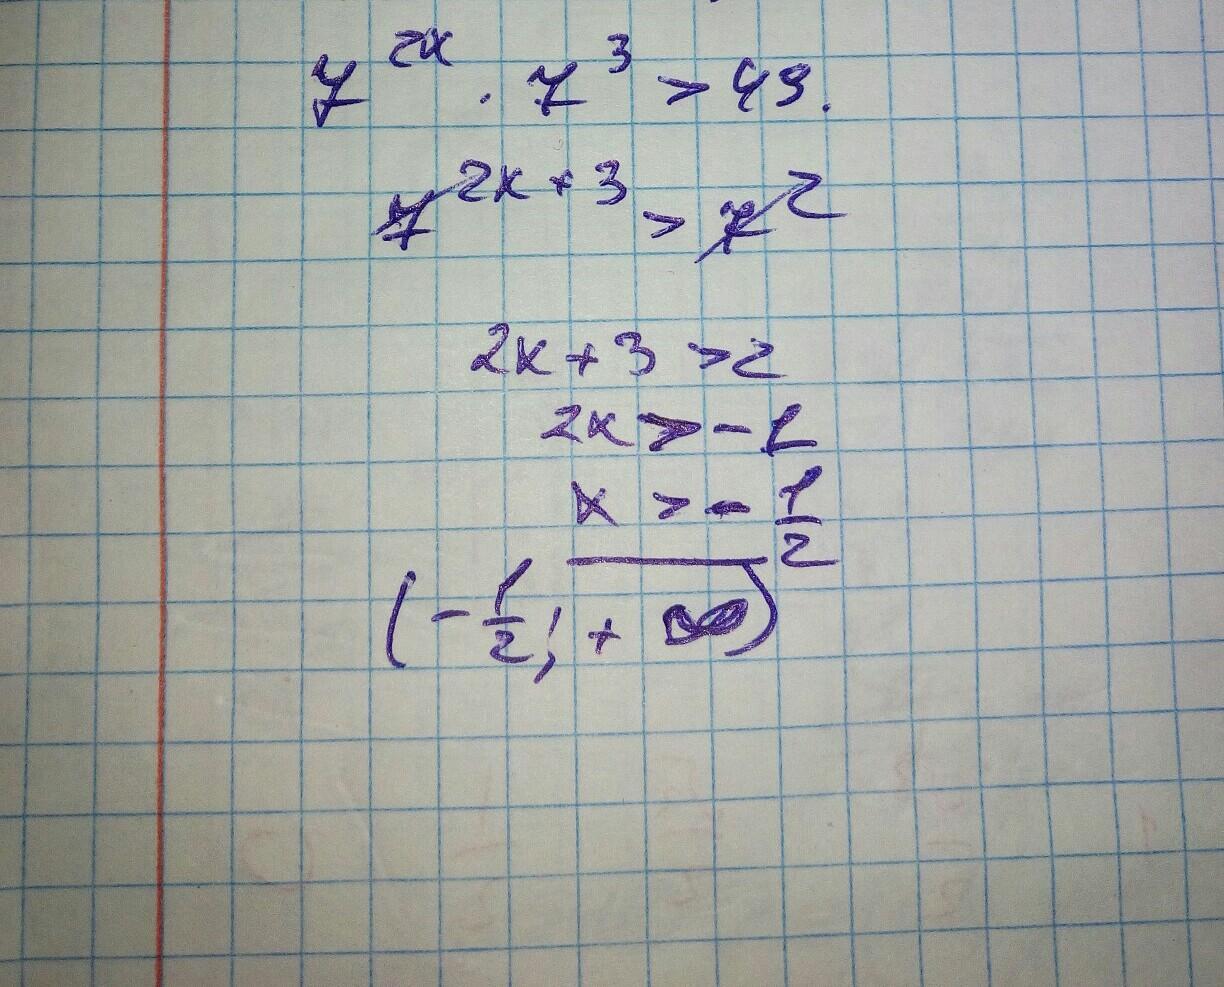 7^{2x} · 7^3 > 49.
7^{2x+3} > 7^2
2x+3 > 2
2x > -1
x > - 1/2
(- 1/2; + ∞)